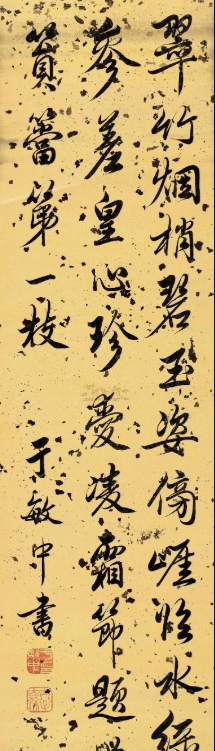 翠竹烟梢碧玉姿傍崖临水绿
参差皇心珍爱凌霜节题
筼簹第一枝
于敏中书